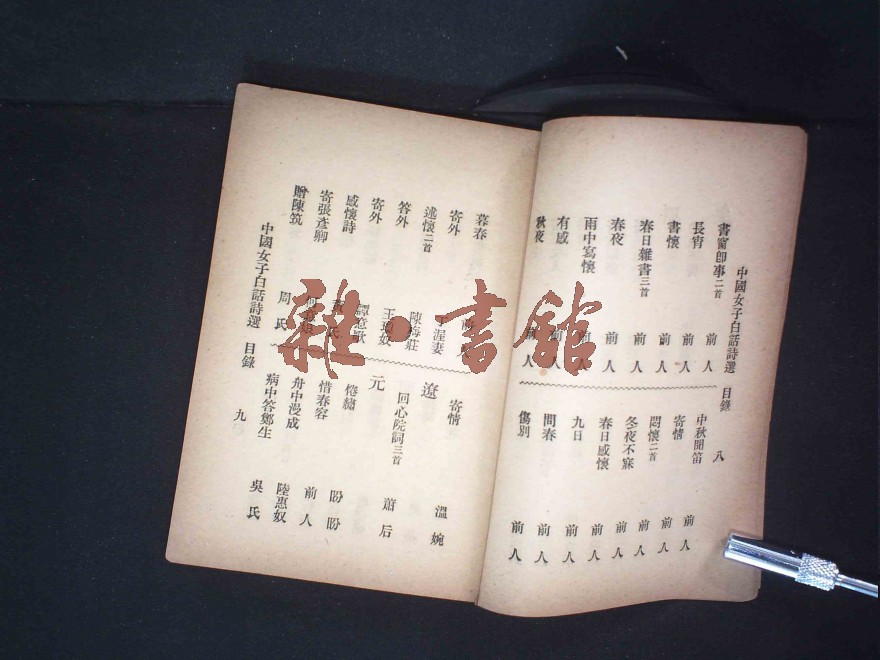 中國女子白話詩選 目錄 八
書窗卽事二首 前人
長宵 前人
書懷 前人
春日雜書三首 前人
春夜 前人
雨中寫懷
有感
秋夜 前人
中秋聞笛 前人
寄情 前人
悶懷二首 前人
冬夜不寐 前人
春日感懷 前人
九日 前人
問春 前人
傷別 前人
暮春
寄外
述懷二首 陳梅莊
答外
寄外 譚意歌
感懷詩
寄張彥卿
贈陳筑 周氏
寄情 溫婉
遼
回心院詞三首 蕭后
元
倦繡
惜春容 盼盼
舟中漫成 陸惠奴
病中答鄭生 吳氏
前人
中國女子白話詩選 目錄 九
雜·書館